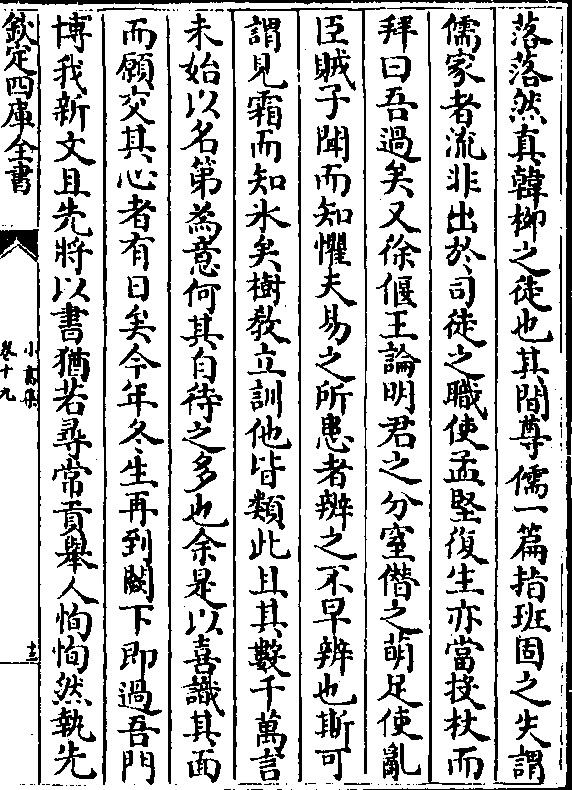 落落然真韓柳之徒也其間尊儒一篇指班固之失謂
儒家者流非出於司徒之職使孟堅復生亦當投杖而
拜曰吾過矣又徐偃王論明君之分窒僭之萌足使亂
臣賊子聞而知懼夫易之所患者辨之不早辨也斯可
謂見霜而知氷矣樹敎立訓他皆類此且其數千萬言
未始以名第為意何其自待之多也余是以喜識其面
而願交其心者有日矣今年冬生再到闕下即過吾門
博我新文且先將以書猶若尋常貢舉人恂恂然執先
欽定四庫全書
小畜集
卷十九
十三